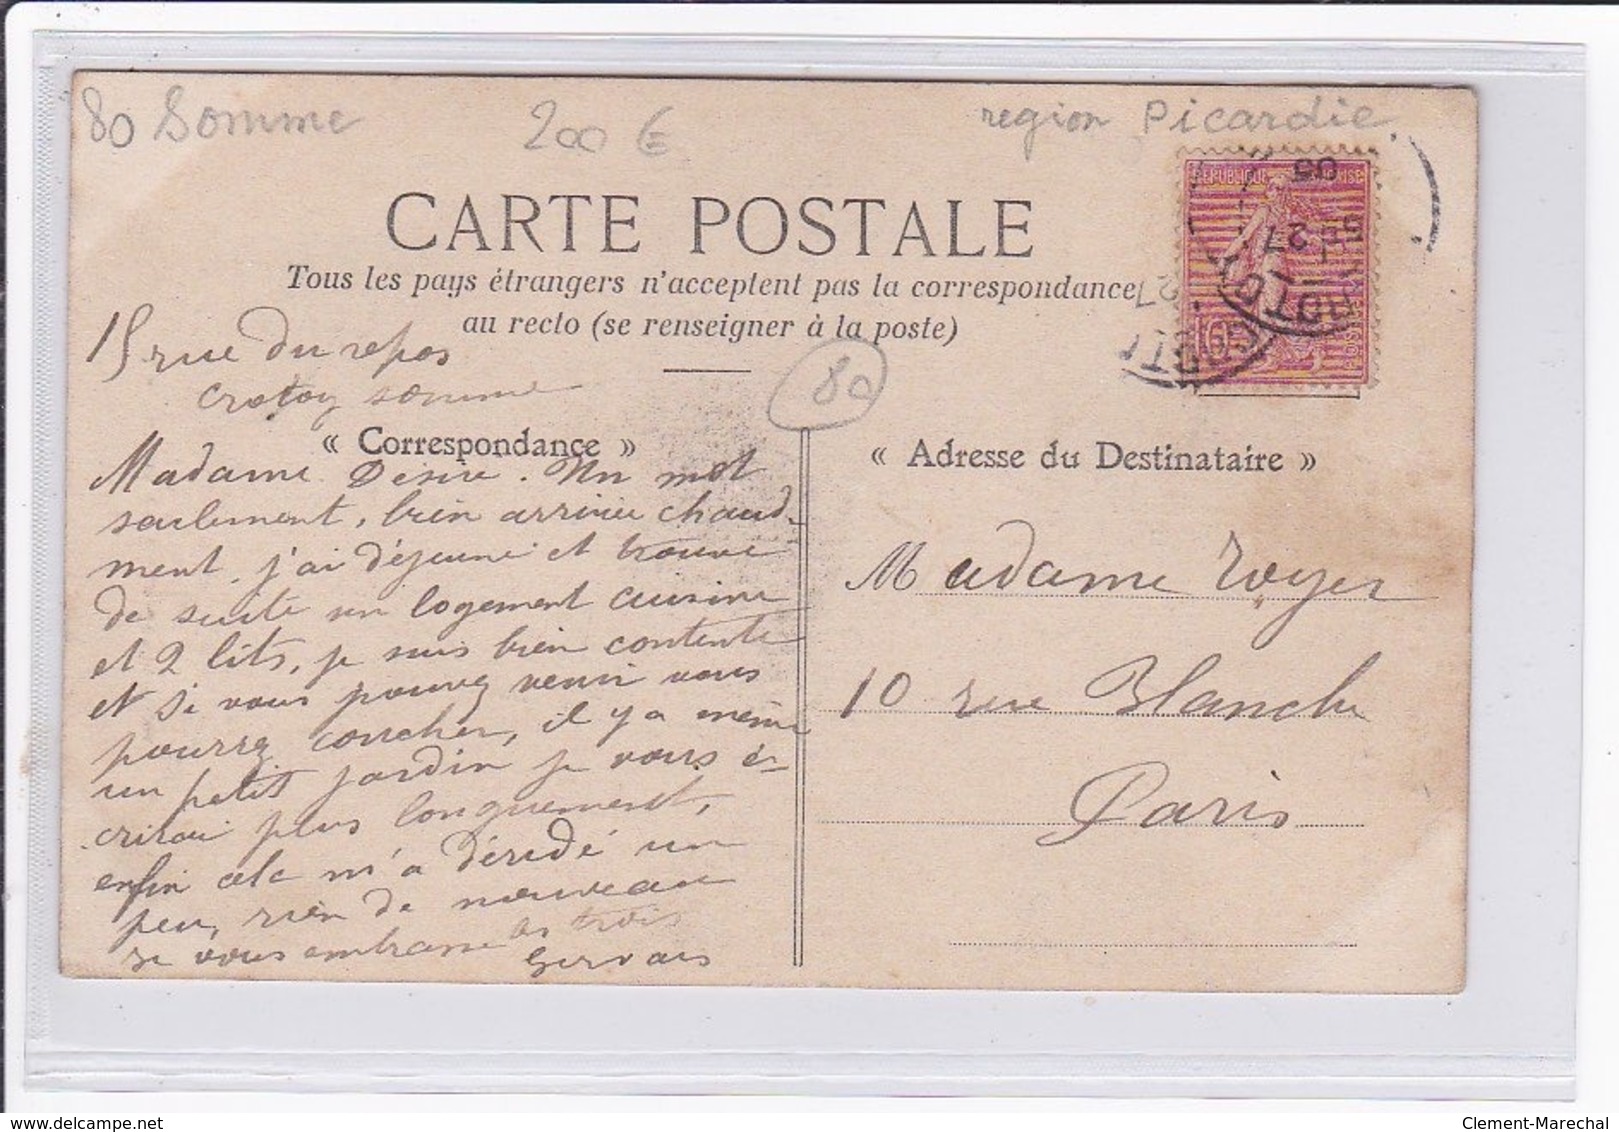 80 Somme
200 €
region Picardie
CARTE POSTALE
Tous les pays étrangers n'acceptent pas la correspondance
au recto (se renseigner à la poste)
REPUBLIQUE
05
27
15 rue du repos
Crotoy Somme
80
« Correspondance »
Madame Désiré. Un mot
seulement, bien arrivée chaud-
ment, j'ai déjeuné et trouve
de suite un logement cuisine
et 2 lits, je suis bien contente
et si vous pouvez venir vous
pourrez coucher, il y a même
un petit jardin je vous é-
crirai plus longuement,
enfin cela m'a déridé un
peu, rien de nouveau
je vous embrasse les trois
Gervais
« Adresse du Destinataire »
Madame Royer
10 rue Blanche
Paris
Clement-Marechal